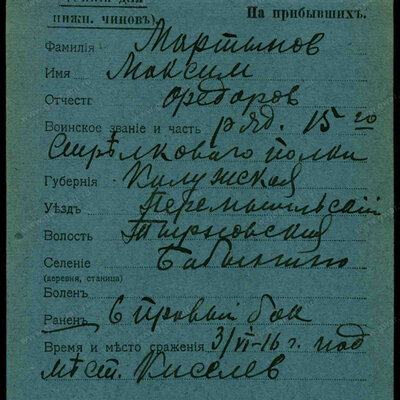 нижн. чиновъ)
На прибывшихъ.
Фамилія Мартынов
Имя Максим
Отчест Федоров
Воинское званіе и часть ряд. 15го
Стрѣлковаго полка
Губернія Калужская
Уѣздъ Перемышльскій
Волость
Селеніе Бабынино
(деревня, станица)
Боленъ
Раненъ в правый бок
Время и мѣсто сраженія 3/VI-16 г. под
мѣст. Киселев